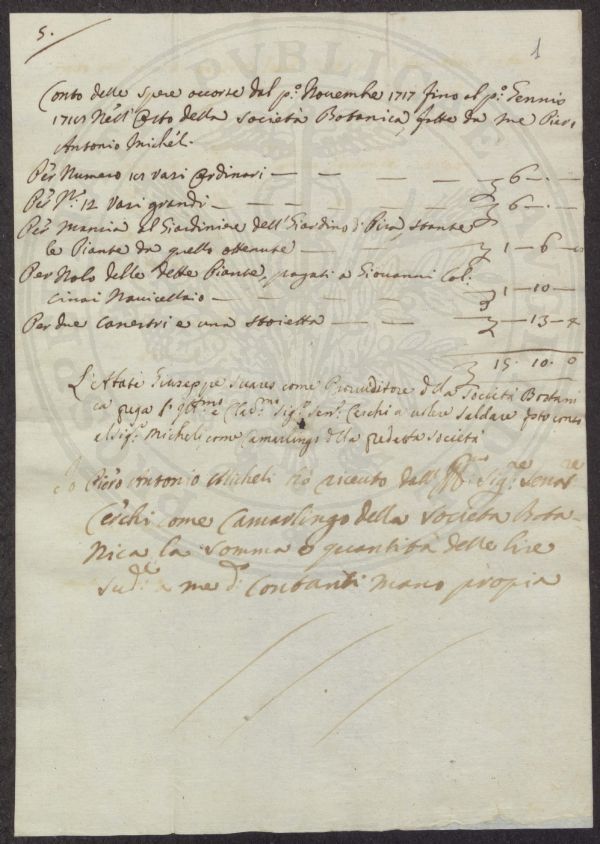 5.
1
Conto delle spese occorse dal p.º Novembre 1717 fino al p.º Gennio
Nell'Orto della Società Botanica, fatte da me Pier
Antonio Michel.
Per Numero vasi Ordinari — — — — 6 — . —
Per N.º 12 Vasi grandi — — — — — 6 — . —
Per Mancia al Giardiniere dell'Giardino di Pisa, stante
le Piante da quello ottenute — — — 1 — 6 —
Per Nolo delle dette Piante, pagati a Giovanni Col:
Navicellaio — — — — — — 1 — 10 —
Per due Canestri e una stoietta — — — 13 — 4
15. 10. 0
L'Abate Giuseppe Suares come Proveditore della Società Botani
ca prega l' e Sig.re Sen.re Cerchi a volere saldare conto
al Sig.re Micheli come Camarlingo della predetta Società
Io Piero Antonio Micheli hò riceuto dall' Sig.re Senat.re
Cerchi come Camarlingo della Società Bota-
Nica la somma e quantità delle lire
sud.e a me d.º Contanti Mano propia
PVBLICE